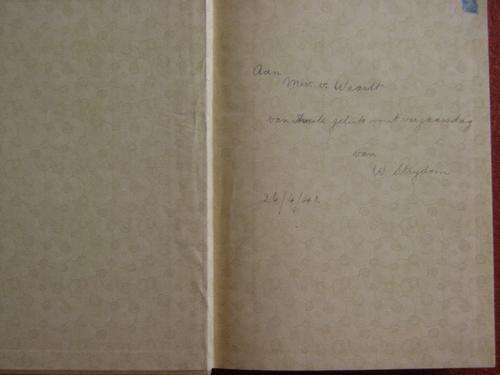 Aan
Mev. v. Weardt
van harte geluk met verjaarsdag
van
W Strydom
26/4/42